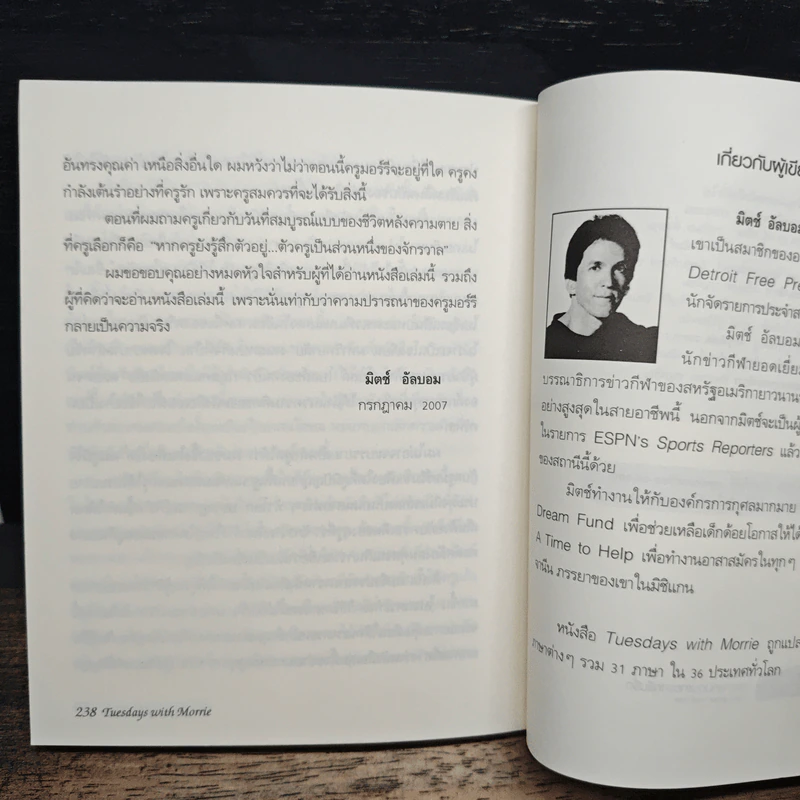 อันทรงคุณค่า เหนือสิ่งอื่นใด ผมหวังว่าไม่ว่าตอนนี้ครูมอร์รีจะอยู่ที่ใด ครูคง
กำลังเต้นรำอย่างที่ครูรัก เพราะครูสมควรที่จะได้รับสิ่งนี้
ตอนที่ผมถามครูเกี่ยวกับวันที่สมบูรณ์แบบของชีวิตหลังความตาย สิ่ง
ที่ครูเลือกก็คือ "หากครูยังรู้สึกตัวอยู่...ตัวครูเป็นส่วนหนึ่งของจักรวาล"
ผมขอขอบคุณอย่างหมดหัวใจสำหรับผู้ที่ได้อ่านหนังสือเล่มนี้ รวมถึง
ผู้ที่คิดว่าจะอ่านหนังสือเล่มนี้ เพราะนั่นเท่ากับว่าความปรารถนาของครูมอร์รี
กลายเป็นความจริง
มิตช์ อัลบอม
กรกฎาคม 2007
238 Tuesdays with Morrie
เกี่ยวกับผู้เขีย
มิตช์ อัลบอม
เขาเป็นสมาชิกของอ
Detroit Free Pre
นักจัดรายการประจำส
มิตช์ อัลบอม
นักข่าวกีฬายอดเยี่ยม
บรรณาธิการข่าวกีฬาของสหรัฐอเมริกายาวนาน
อย่างสูงสุดในสายอาชีพนี้ นอกจากมิตช์จะเป็นผู้
ในรายการ ESPN's Sports Reporters แล้ว
ของสถานีนี้ด้วย
มิตช์ทำงานให้กับองค์กรการกุศลมากมาย
Dream Fund เพื่อช่วยเหลือเด็กด้อยโอกาสให้ได้
A Time to Help เพื่อทำงานอาสาสมัครในทุกๆ
จานีน ภรรยาของเขาในมิชิแกน
หนังสือ Tuesdays with Morrie ถูกแปล
ภาษาต่างๆ รวม 31 ภาษา ใน 36 ประเทศทั่วโลก